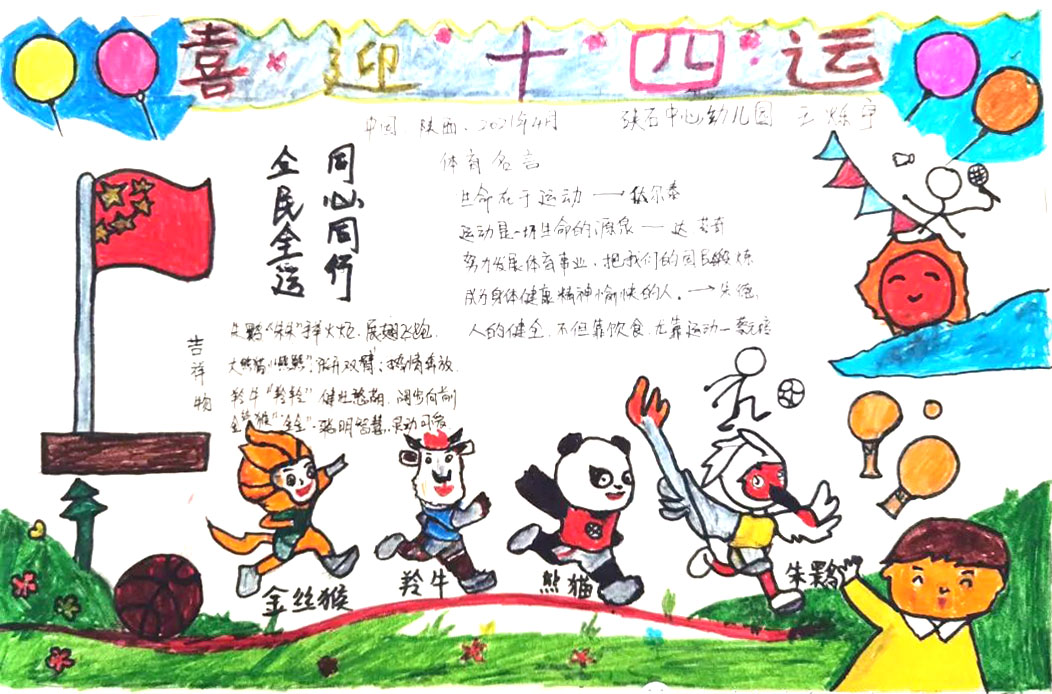 喜迎十四运
中国 陕西、2021年4月 硖石中心幼儿园 王烁宇
同心同行
全民全运
体育名言
生命在于运动 — 伏尔泰
运动是一切生命的源泉 — 达芬奇
努力发展体育事业，把我们的国民锻炼
成为身体健康精神愉快的人。— 朱德
人的健全，不但靠饮食，尤靠运动 — 蔡元培
吉祥物
朱鹮“朱朱”手举火炬，展翅飞跑，
大熊猫“熊熊”张开双臂，热情奔放
羚牛“羚羚”健壮憨萌，阔步向前
金丝猴“金金”聪明智慧、灵动可爱
金丝猴
羚牛
熊猫
朱鹮